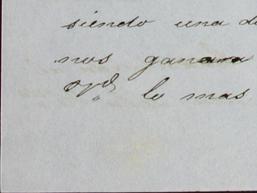 siendo una de
nos ganara
lo mas